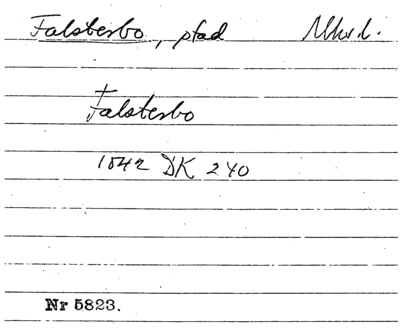 Falsterbo, stad
Falsterbo
1542 DK 240
Nr 5823.